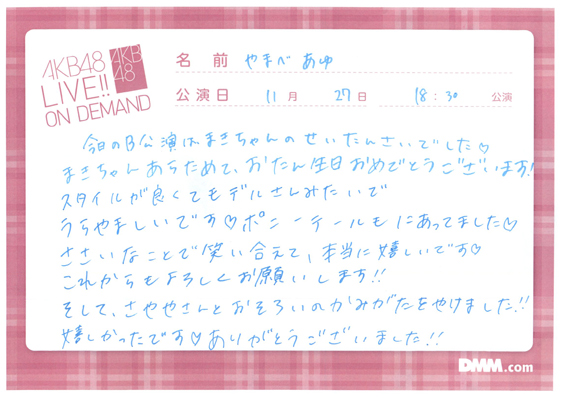 AKB48
LIVE!!
ON DEMAND
AKB
48
名前 やまべ あゆ
公演日 11月 27日 18:30 公演
今日のB公演はまきちゃんのせいたんさいでした♡
まきちゃんあらためて、おたん生日おめでとうございます!!
スタイルが良くてモデルさんみたいで
うらやましいです♡ポニーテールもにあってました♡
ささいなことで笑い合えて、本当に嬉しいです♡
これからもよろしくお願いします!!
そして、さややさんとおそろいのかみがたをやけました!!
嬉しかったです♡ありがとうございました!!
DMM.com